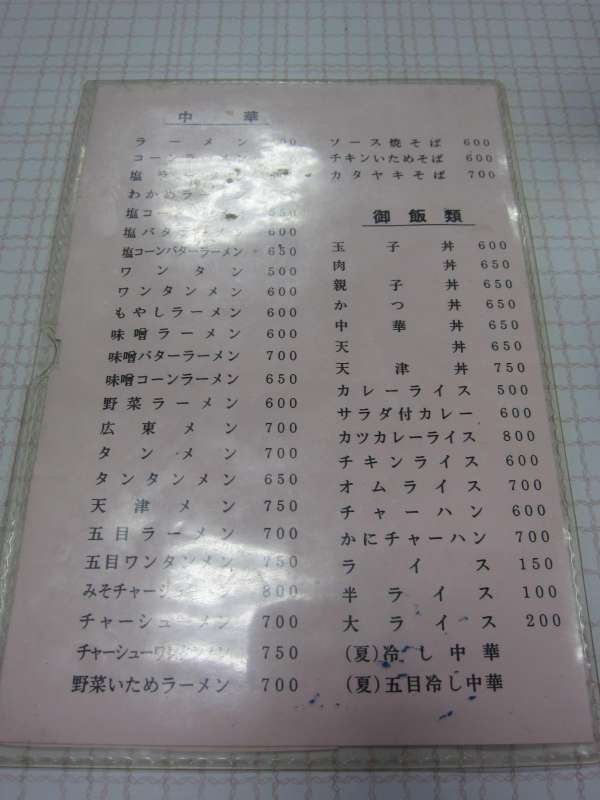 中華
ラーメン
コーンラーメン
塩
わかめラー
塩コー 550
塩バタ 600
塩コーンバターラーメン 650
ワンタン 500
ワンタンメン 600
もやしラーメン 600
味噌ラーメン 600
味噌バターラーメン 700
味噌コーンラーメン 650
野菜ラーメン 600
広東メン 700
タンメン 700
タンタンメン 650
天津メン 750
五目ラーメン 700
五目ワンタンメン 750
みそチャーシューメン 800
チャーシューメン 700
チャーシューワンタンメン 750
野菜いためラーメン 700
ソース焼そば 600
チキンいためそば 600
カタヤキそば 700
御飯類
玉子丼 600
肉丼 650
親子丼 650
かつ丼 650
中華丼 650
天丼 650
天津丼 750
カレーライス 500
サラダ付カレー 600
カツカレーライス 800
チキンライス 600
オムライス 700
チャーハン 600
かにチャーハン 700
ライス 150
半ライス 100
大ライス 200
(夏)冷し中華
(夏)五目冷し中華